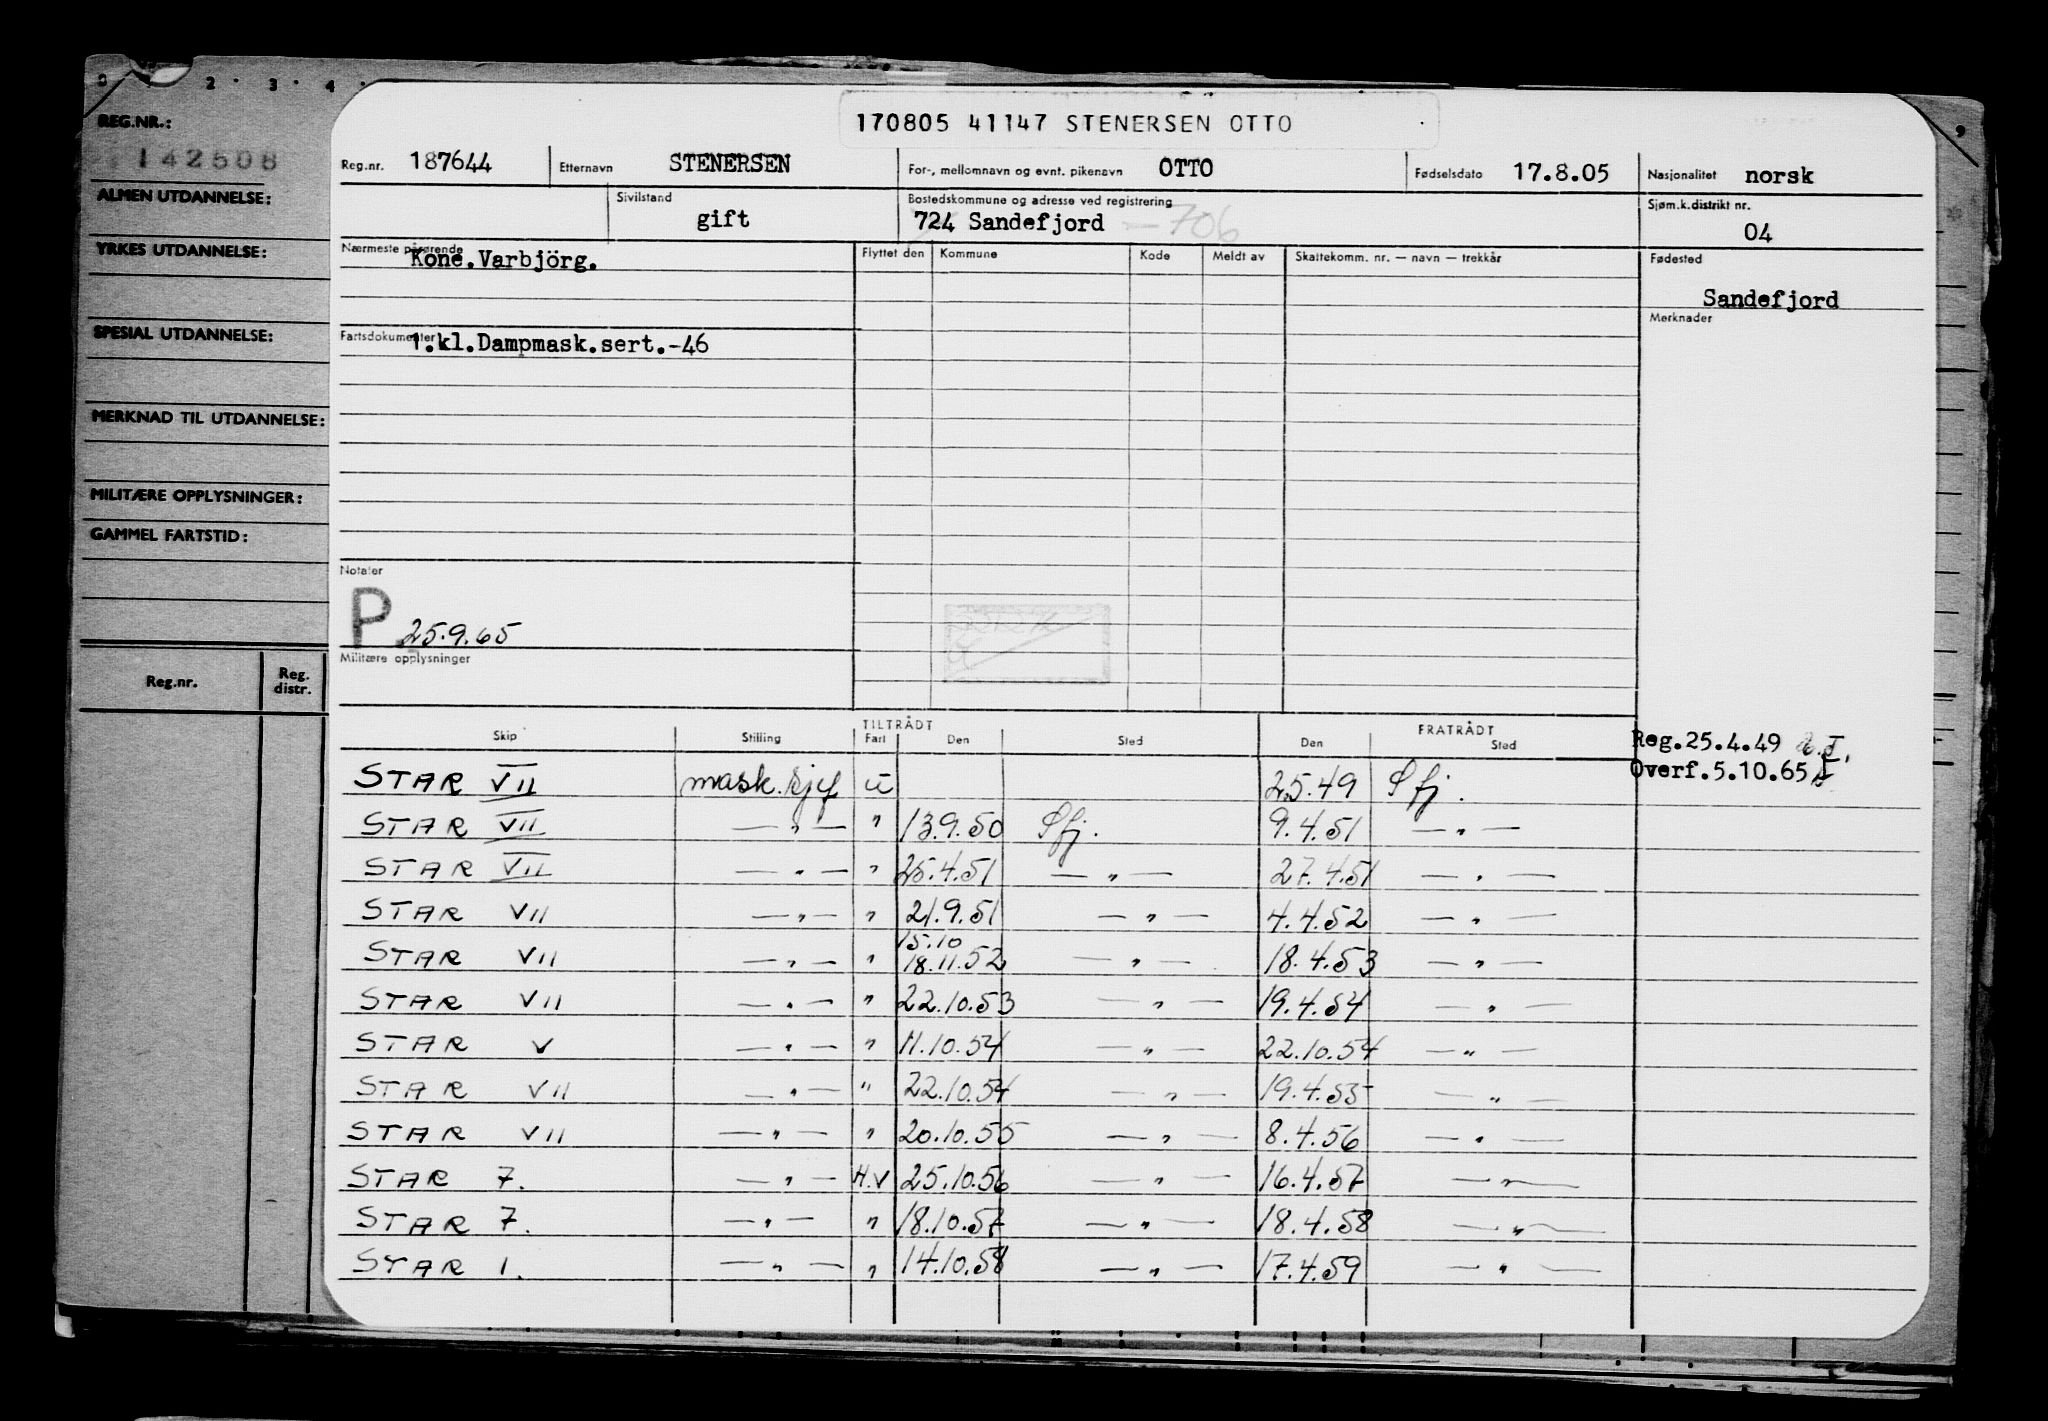 0 2 · 3 · 4 · 9
REG.NR.:
142508
ALMEN UTDANNELSE:
YRKES UTDANNELSE:
SPESIAL UTDANNELSE:
MERKNAD TIL UTDANNELSE:
MILITÆRE OPPLYSNINGER:
GAMMEL FARTSTID:
Reg.nr. Reg. distr.
170805 41147 STENERSEN OTTO
Reg.nr. 187644 Etternavn STENERSEN For-, mellomnavn og evnt. pikenavn OTTO Fødselsdato 17.8.05 Nasjonalitet norsk
Sivilstand gift Bostedskommune og adresse ved registrering 724 Sandefjord — 706 Sjøm.k.distrikt nr. 04
Nærmeste pårørende Kone.Varbjörg. Flyttet den Kommune Kode Meldt av Skattekomm. nr. — navn — trekkår Fødested
Sandefjord
Merknader
Fartsdokumenter 1.kl.Dampmask.sert.-46
Notater
P 25.9.65
Militære opplysninger
TILTRÅDT FRATRÅDT
Skip Stilling Fart Den Sted Den Sted
Reg.25.4.49
Overf.5.10.65
STAR VII mask.sjef u 2.5.49 Sfj.
STAR VII — " — " 13.9.50 Sfj. 9.4.51 — " —
STAR VII — " — " 25.4.51 — " — 27.4.51 — " —
STAR VII — " — " 21.9.51 — " — 4.4.52 — " —
STAR VII — " — " 15.10 18.11.52 — " — 18.4.53 — " —
STAR VII — " — " 22.10.53 — " — 19.4.54 — " —
STAR V — " — " 11.10.54 — " — 22.10.54 — " —
STAR VII — " — " 22.10.54 — " — 19.4.55 — " —
STAR VII — " — " 20.10.55 — " — 8.4.56 — " —
STAR 7. — " — H.V 25.10.56 — " — 16.4.57 — " —
STAR 7. — " — " 18.10.57 — " — 18.4.58 — " —
STAR 1. — " — " 14.10.58 — " — 17.4.59 — " —